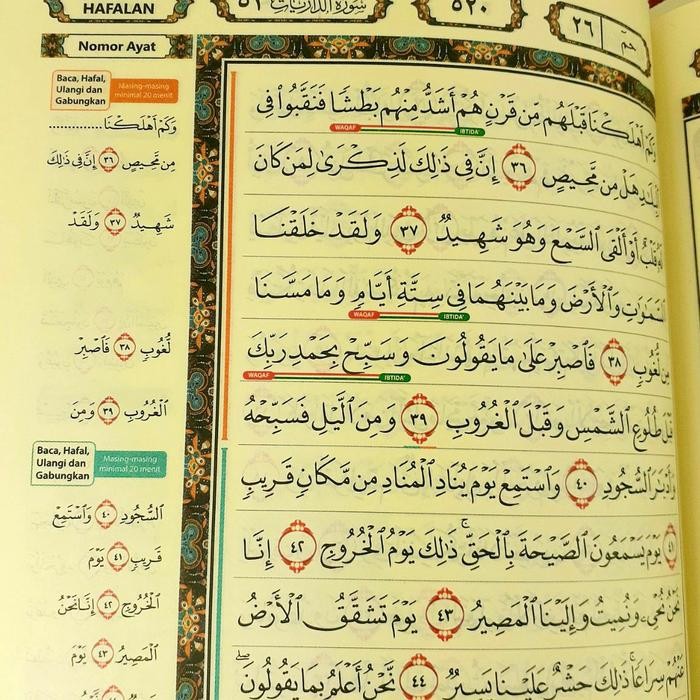 HAFALAN
سورة الذاريات ٥١
٥٢٠
حم ٢٦
Nomor Ayat
Baca, Hafal,
Ulangi dan
Gabungkan
Masing-masing
minimal 20 menit
وَكَمْ أَهْلَكْنَا..............
مِن مَّحِيصٍ ٣٦ إِنَّ فِى ذَٰلِكَ
شَهِيدٌ ٣٧ وَلَقَدْ
لُّغُوبٍ ٣٨ فَٱصْبِرْ
ٱلْغُرُوبِ ٣٩ وَمِنَ
Baca, Hafal,
Ulangi dan
Gabungkan
Masing-masing
minimal 20 menit
ٱلسُّجُودِ ٤٠ وَٱسْتَمِعْ
قَرِيبٍ ٤١ يَوْمَ
ٱلْخُرُوجِ ٤٢ إِنَّا نَحْنُ
ٱلْمَصِيرُ ٤٣ يَوْمَ
وَكَمْ أَهْلَكْنَا قَبْلَهُم مِّن قَرْنٍ هُمْ أَشَدُّ مِنْهُم بَطْشًا فَنَقَّبُوا۟ فِى
WAQAF IBTIDA'
ٱلْبِلَٰدِ هَلْ مِن مَّحِيصٍ ٣٦ إِنَّ فِى ذَٰلِكَ لَذِكْرَىٰ لِمَن كَانَ
لَهُۥ قَلْبٌ أَوْ أَلْقَى ٱلسَّمْعَ وَهُوَ شَهِيدٌ ٣٧ وَلَقَدْ خَلَقْنَا
ٱلسَّمَٰوَٰتِ وَٱلْأَرْضَ وَمَا بَيْنَهُمَا فِى سِتَّةِ أَيَّامٍ وَمَا مَسَّنَا
WAQAF IBTIDA'
مِن لُّغُوبٍ ٣٨ فَٱصْبِرْ عَلَىٰ مَا يَقُولُونَ وَسَبِّحْ بِحَمْدِ رَبِّكَ
WAQAF IBTIDA'
قَبْلَ طُلُوعِ ٱلشَّمْسِ وَقَبْلَ ٱلْغُرُوبِ ٣٩ وَمِنَ ٱلَّيْلِ فَسَبِّحْهُ
وَأَدْبَٰرَ ٱلسُّجُودِ ٤٠ وَٱسْتَمِعْ يَوْمَ يُنَادِ ٱلْمُنَادِ مِن مَّكَانٍ قَرِيبٍ
٤١ يَوْمَ يَسْمَعُونَ ٱلصَّيْحَةَ بِٱلْحَقِّ ۚ ذَٰلِكَ يَوْمُ ٱلْخُرُوجِ ٤٢ إِنَّا
نَحْنُ نُحْىِۦ وَنُمِيتُ وَإِلَيْنَا ٱلْمَصِيرُ ٤٣ يَوْمَ تَشَقَّقُ ٱلْأَرْضُ
عَنْهُمْ سِرَاعًا ۚ ذَٰلِكَ حَشْرٌ عَلَيْنَا يَسِيرٌ ٤٤ نَّحْنُ أَعْلَمُ بِمَا يَقُولُونَ ۖ